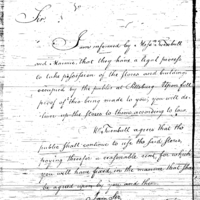 Sir,
I am informed by Messrs. Turnbull
and Marmie, that they have a legal process
to take possession of the stores and buildings
occupied by the public at Pittsburg. Upon full
proof of this being made to you, you will de-
liver up the stores to them accordingly.
Wm. Turnbull agrees that the
public shall continue to use the said stores
paying therefor a reasonable rent for which
you will have fixed in the manner that shall
be agreed upon by you and them.
I am Sir